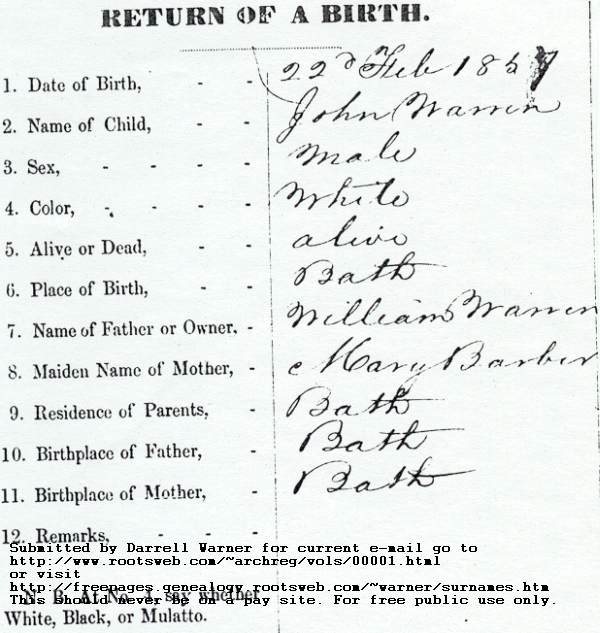 RETURN OF A BIRTH.
1. Date of Birth, - - 22d Feb 1857
2. Name of Child, - - John Warren
3. Sex, - - - - Male
4. Color, - - - - White
5. Alive or Dead, - - alive
6. Place of Birth, - - Bath
7. Name of Father or Owner, - William Warren
8. Maiden Name of Mother, - Mary Barber
9. Residence of Parents, - Bath
10. Birthplace of Father, - Bath
11. Birthplace of Mother, - Bath
12. Remarks, - - -
Submitted by Darrell Warner for current e-mail go to
http://www.rootsweb.com/~archreg/vols/00001.html
or visit
http://freepages.genealogy.rootsweb.com/~warner/surnames.htm
N. B. At No. 4, say whether
This should never be on a pay site. For free public use only.
White, Black, or Mulatto.